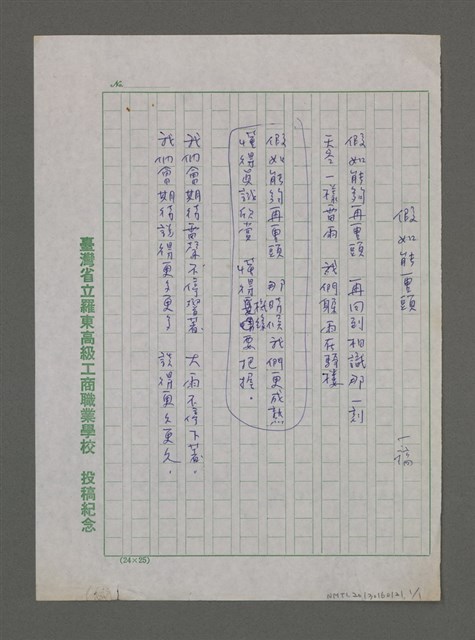 No.
假如能重頭
一稿
假如能夠再重頭 再回到相識那一刻
天冬一樣雷雨 我們聚雨在騎樓
假如能夠再重頭 那時候我們更成熟
懂得真誠欣賞 懂得機緣要把握。
我們會期待雷聲不停響著 大雨不停下著。
我們會期待談得更多更多 談得更久更久。
臺灣省立羅東高級工商職業學校 投稿紀念
(24×25)